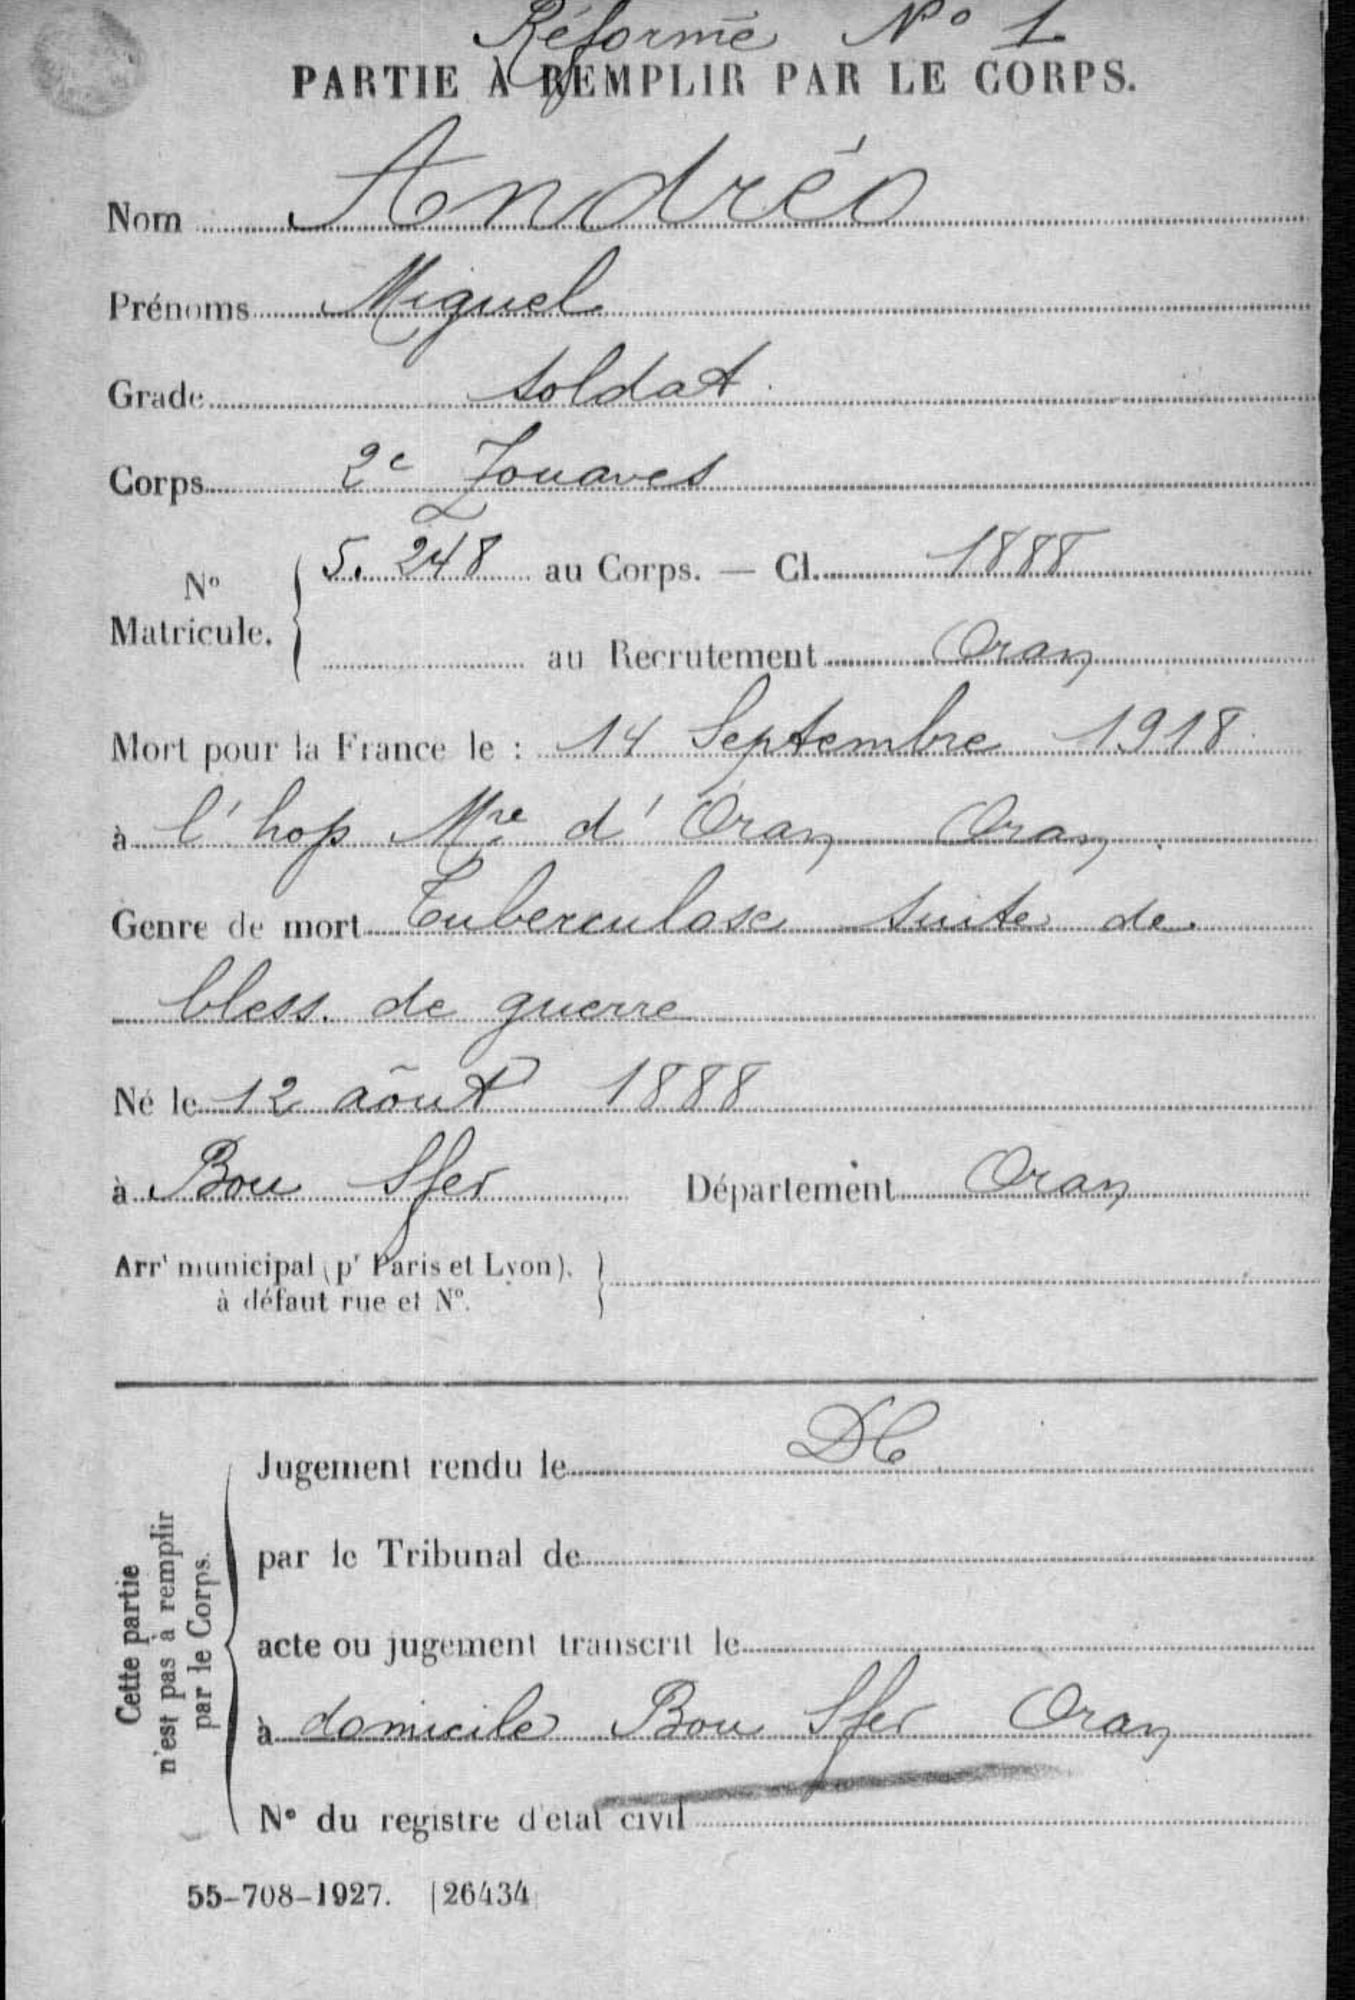 Réformé N° 1
PARTIE À REMPLIR PAR LE CORPS.
Nom Andréo
Prénoms Miguel
Grade soldat
Corps 2e Zouaves
N° Matricule. 5.248 au Corps. — Cl. 1888
au Recrutement Oran
Mort pour la France le : 14 Septembre 1918
à l'hop Mre d'Oran Oran
Genre de mort Tuberculose suite de
bless. de guerre
Né le 12 aôut 1888
à Bou Sfer Département Oran
Arrt municipal (pr Paris et Lyon),
à défaut rue et N°.
Cette partie
n'est pas à remplir
par le Corps.
Jugement rendu le DC
par le Tribunal de
acte ou jugement transcrit le
à domicile Bou Sfer Oran
N° du registre d'état civil
55-708-1927. [26434